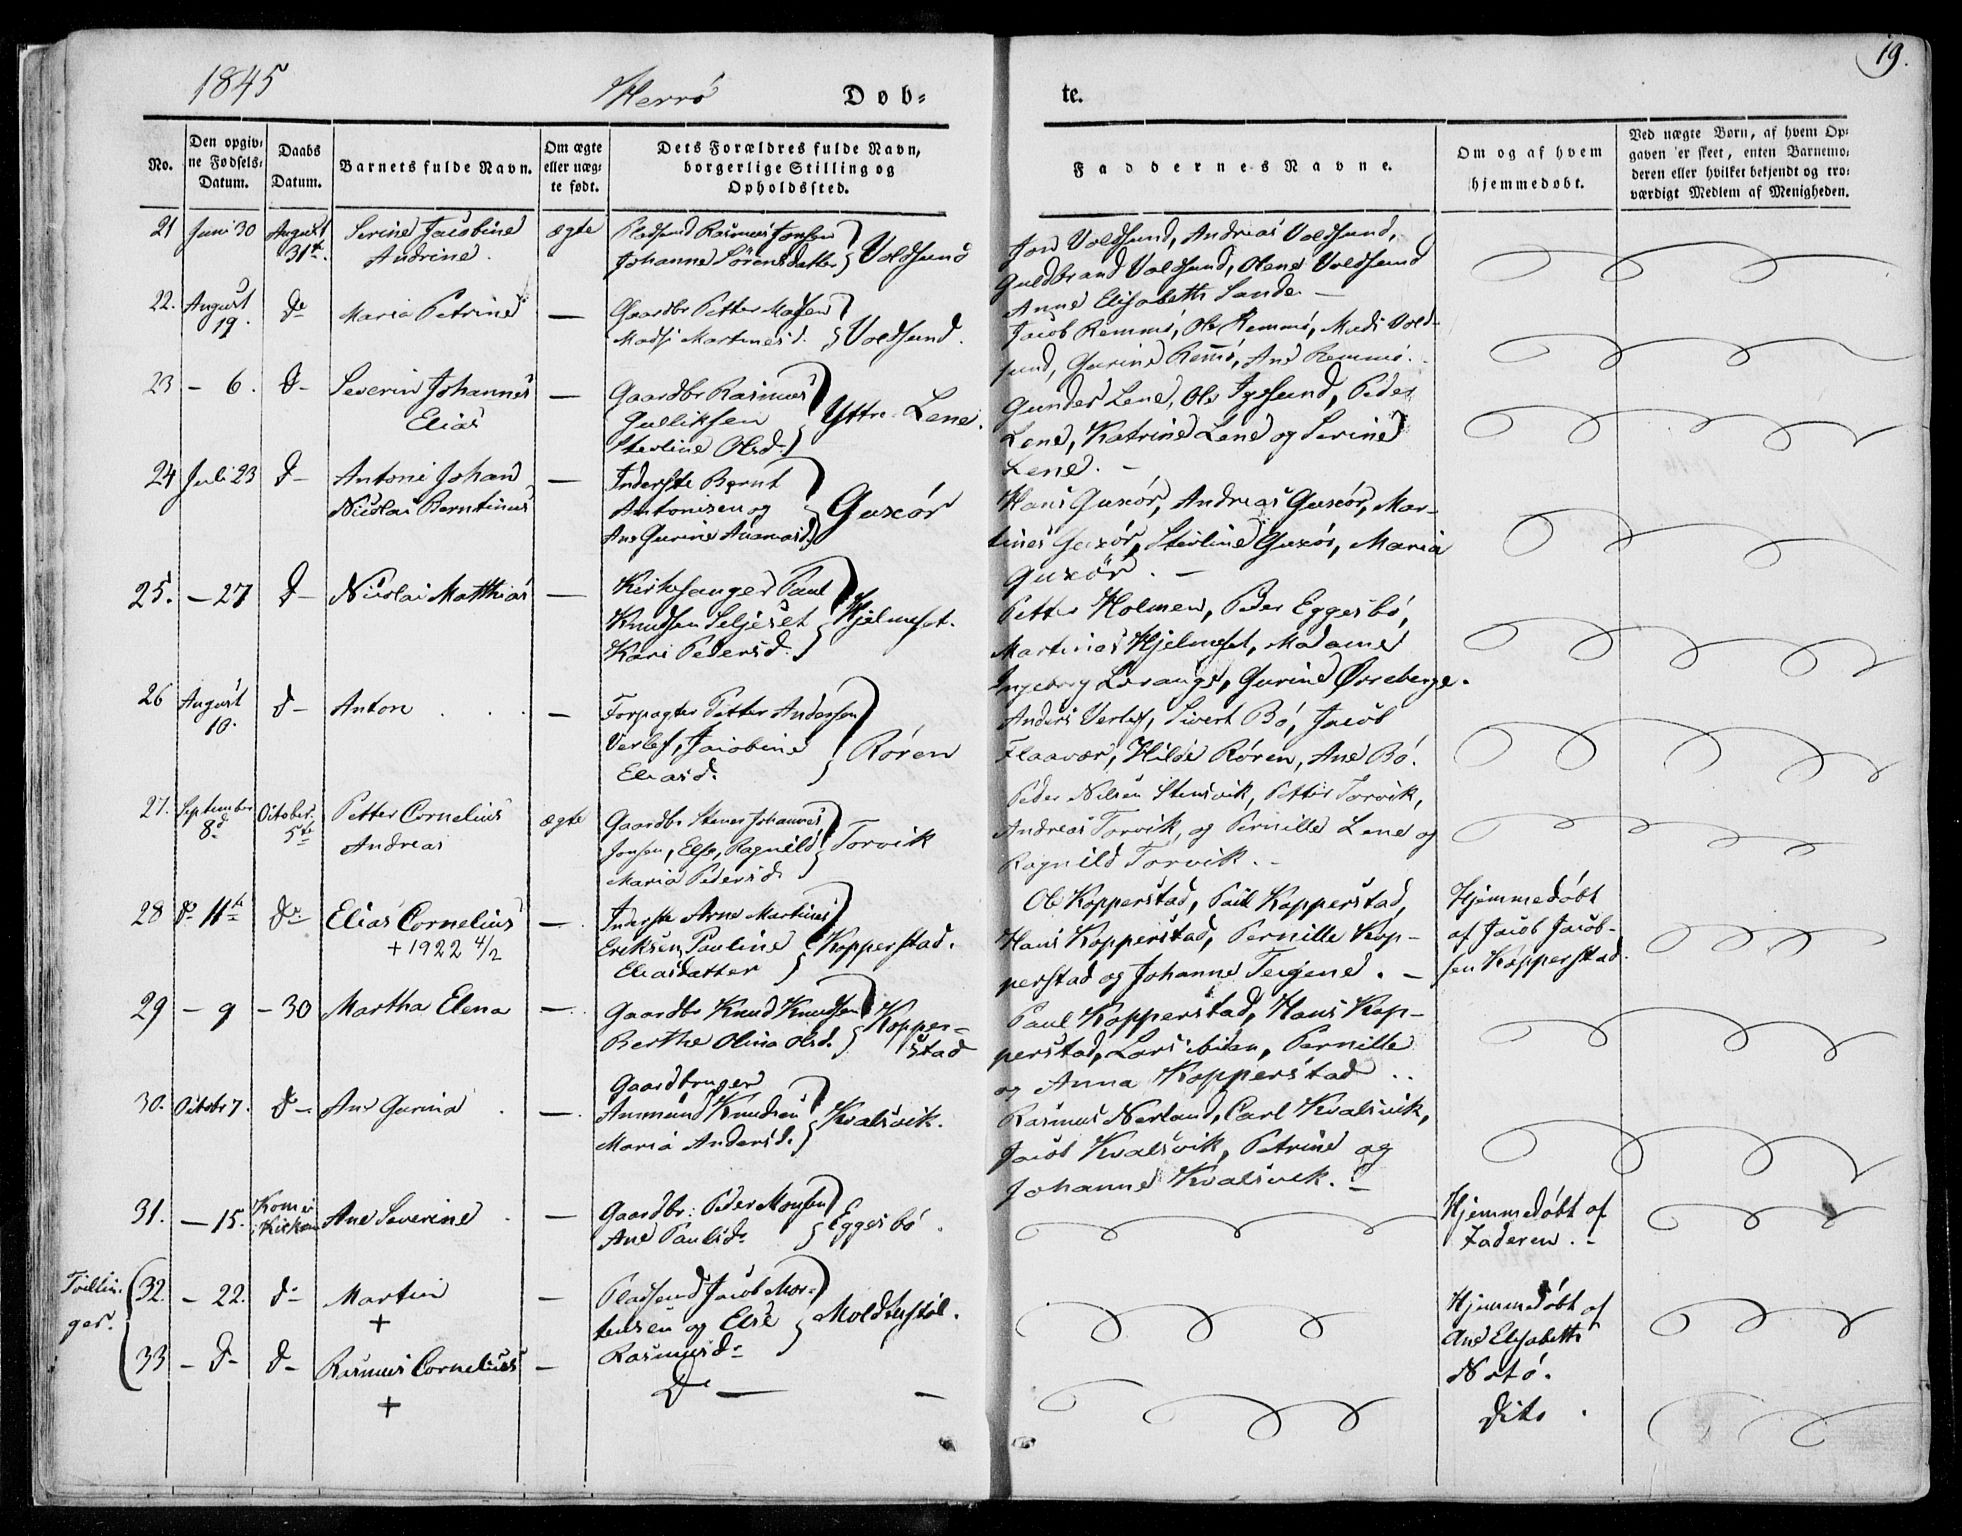 1845 Herrö Döb-
te. 19.
No.
Den opgiv-
ne Fødsels-
Datum.
Daabs
Datum.
Barnets fulde Navn.
Om ægte
eller uæg-
te født.
Dets Forældres fulde Navn,
borgerlige Stilling og
Opholdssted.
Faddernes Navne.
Om og af hvem
hjemmedøbt.
Ved uægte Børn, af hvem Op-
gaven er skeet, enten Barnemo-
deren eller hvilket bekjendt og tro-
værdigt Medlem af Menigheden.
21 Juni 30 August 31te Serine Jacobine
Andrine.
ægte
Pladsmd Rasmus Jonsen
Johanne Sörensdatter } Voldsund
Jon Voldsund, Andreas Voldsund,
Guldbrand Voldsund, Olene Voldsund
Anne Elisabeth Sande. —
22. August 19. do Maria Petrine —
Gaardbr Petter Madsen
Madsi Martinesd. } Voldsund.
Jacob Remmö, Ole Remmö, Mads Vold-
sund, Gurine Remö, Ane Remmö.
23 – 6. d– Severin Johannes
Elias
—
Gaardbr Rasmus
Gulliksen
Sterline Olsd. } Yttre Lene.
Gunder Lene, Ole Igesund, Peder
Lene, Katrine Lene og Serine
Lene. –
24 Juli 23 d– Antoni Johan
Nicolai Berntinus
—
Inderste Bernt
Antonisen og
Ane Gurine Ananiasd. } Gurör
Hans Gurör, Andreas Gurör, Mar-
tines Gurör, Sterline Gurör, Maria
Gurör. –
25. – 27 d– Nicolai Matthias —
Kirkesanger Paul
Knudsen Seljeset
Kari Pedersd. } Hjelmeset.
Petter Holmen, Peder Eggesbö,
Martinus Hjelmeset, Madame
Ingeborg Lorange, Gurine Ørreberge.
26 August 10. d– Anton —
Forpagter Petter Andersen
Verlef, Jacobine
Eliasd. } Rören
Anders Verlef, Sivert Bö, Jacob
Flaavær, Hilde Rören, Ane Bö.
27. September 8de October 5te Petter Cornelius
Andreas
ægte
Gaardbr Stener Johannes
Jonsen, Else, Ragnild
Maria Pedersd. } Torvik
Peder Nilsen Stensvik, Petter Torvik,
Andreas Torvik, og Pernille Lene og
Ragnild Torvik. –
28 do 11te do Elias Cornelius
+ 1922 4/2
—
Inderste Arne Martinus
Eriksen, Pauline
Eliasdatter } Kopperstad.
Ole Kopperstad, Paul Kopperstad,
Hans Kopperstad, Pernille Kop-
perstad og Johanne Teigene. –
Hjemmedöbt
af Jacob Jacob-
sen Kopperstad.
29 – 9 – 30 Martha Elena —
Gaardbr Knud Knudsen
Berthe Olina Olsd. } Kopper-
stad
Paul Kopperstad, Hans Kop-
perstad, Lars ibiden, Pernille
og Anna Kopperstad ..
30. Octobr 7. d– Ane Gurina —
Gaardbruger
Ammund Knudsen
Maria Andersd. } Kvalsvik.
Rasmus Nerland, Carl Kvalsvik,
Jacob Kvalsvik, Petrine og
Johanne Kvalsvik. –
31. – 15. Kom ei
i Kirken
Ane Severine —
Gaardbr: Peder Monsen
Ane Paulsd. } Eggesbö.
Hjemmedöbt af
Faderen. –
Tvillin-
ger.
32. – 22. d– Martin
+
—
Pladsmd Jacob Mor-
tensen og Else
Rasmusd. } Moldtustöl.
Hjemmedöbt af
Ane Elisabeth
Notö.
33 – d– d– Rasmus Cornelius
+
—
D — –
Dito.